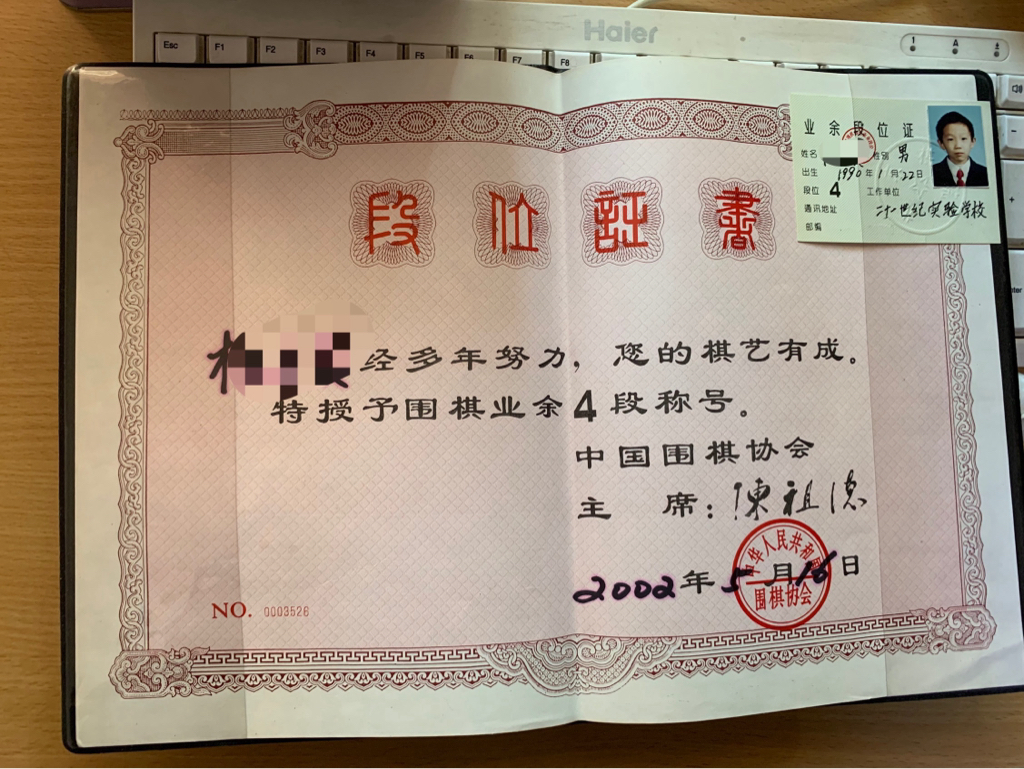 Haier
Esc F1 F2 F3 F4 F5 F6 F7 F8
1 A
业余段位证
姓名 性别 男
出生 1990年1月22日
段位 4 工作单位
通讯地址 二十一世纪实验学校
邮编
段位證書
经多年努力，您的棋艺有成。
特授予围棋业余4段称号。
中国围棋协会
主 席：陳祖德
2002年5月16日
中华人民共和国
围棋协会
NO. 0003526